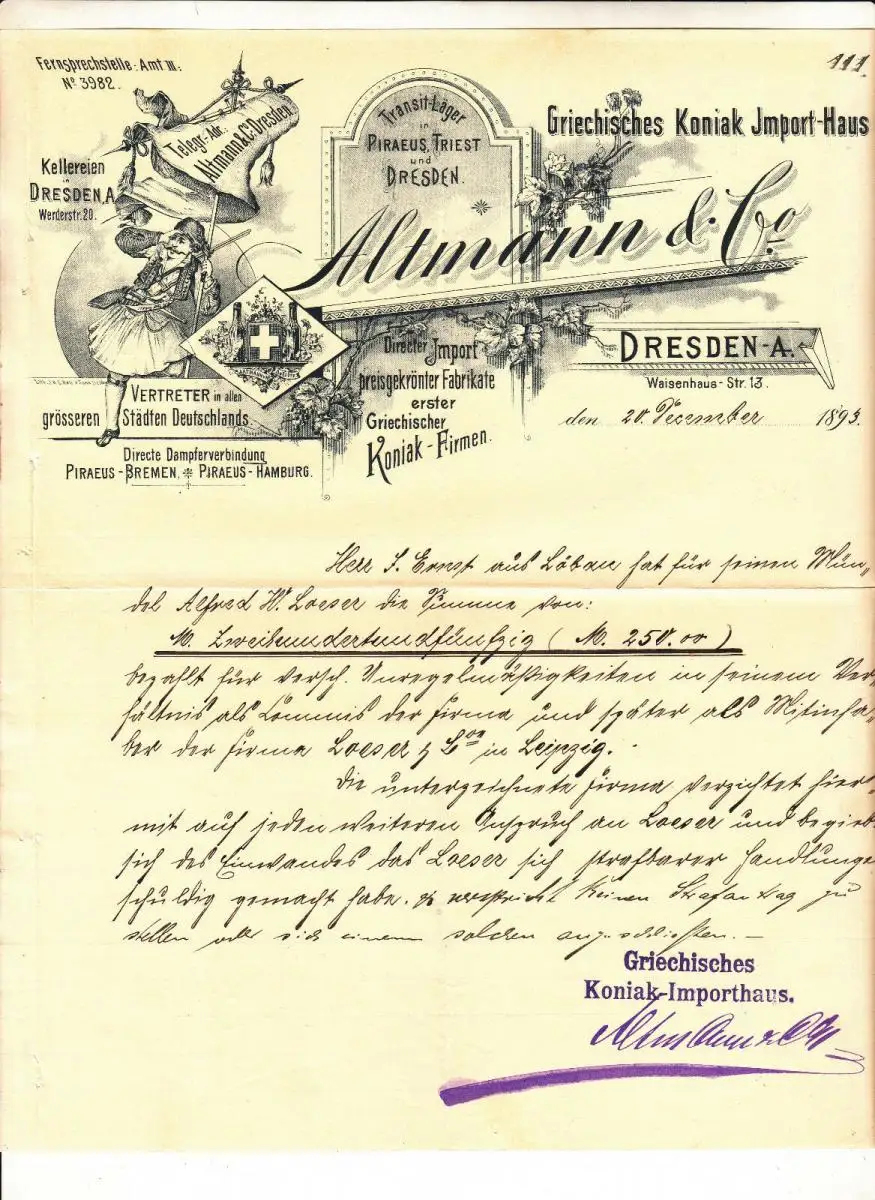 Fernsprechstelle: Amt III:
No 3982.
111.
Telegr.-Adr.
Altmann & Co Dresden
Transit-Läger
in
PIRAEUS, TRIEST
und
DRESDEN.
Griechisches Koniak Jmport-Haus
Kellereien
in
DRESDEN, A
Werderstr. 20.
Altmann & Co.
DRESDEN-A.
Waisenhaus-Str. 13.
Directer Jmport
preisgekrönter Fabrikate
erster
Griechischer
Koniak-Firmen.
VERTRETER in allen
grösseren Städten Deutschlands
Directe Dampferverbindung
PIRAEUS-BREMEN, * PIRAEUS-HAMBURG.
den 20. Dezember 1893.
Herr J. Ernst aus Löbau hat für seinen Mün-
del Alfred W. Loeser die Summe von:
M. Zweihundertundfünfzig (M. 250.00)
bezahlt für versch. Unregelmäßigkeiten in seinem Ver-
hältnis als Commis der Firma und später als Mitinha-
ber der Firma Loeser & Co in Leipzig.
Die unterzeichnete Firma verzichtet hier-
mit auf jeden weiteren Anspruch an Loeser und begiebt
sich des Einwandes das Loeser sich strafbarer Handlungen
schuldig gemacht habe. & verspricht keinen Strafantrag zu
stellen oder sich einem solchen anzuschließen. —
Griechisches
Koniak-Importhaus.
Altmann & Co